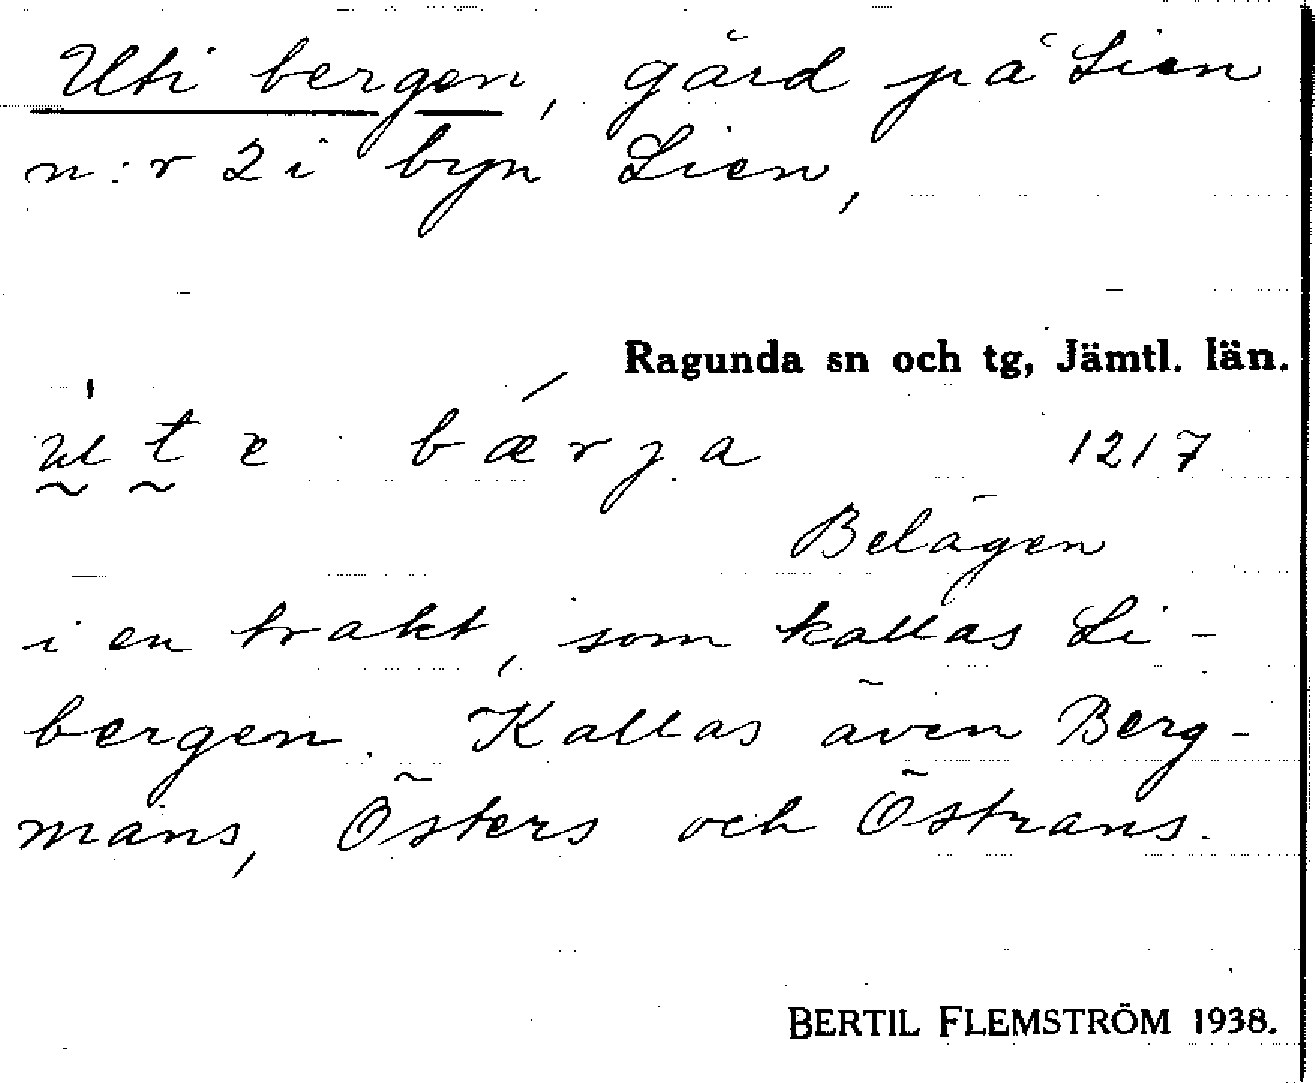 Uti bergen, gård på Lien
n:r 2 i byn Lien,
Ragunda sn och tg, Jämtl. län.
bærja 1217
Belägen
i en trakt, som kallas Li-
bergen. Kallas även Berg-
mans, Östers och Östrans.
BERTIL FLEMSTRÖM 1938.